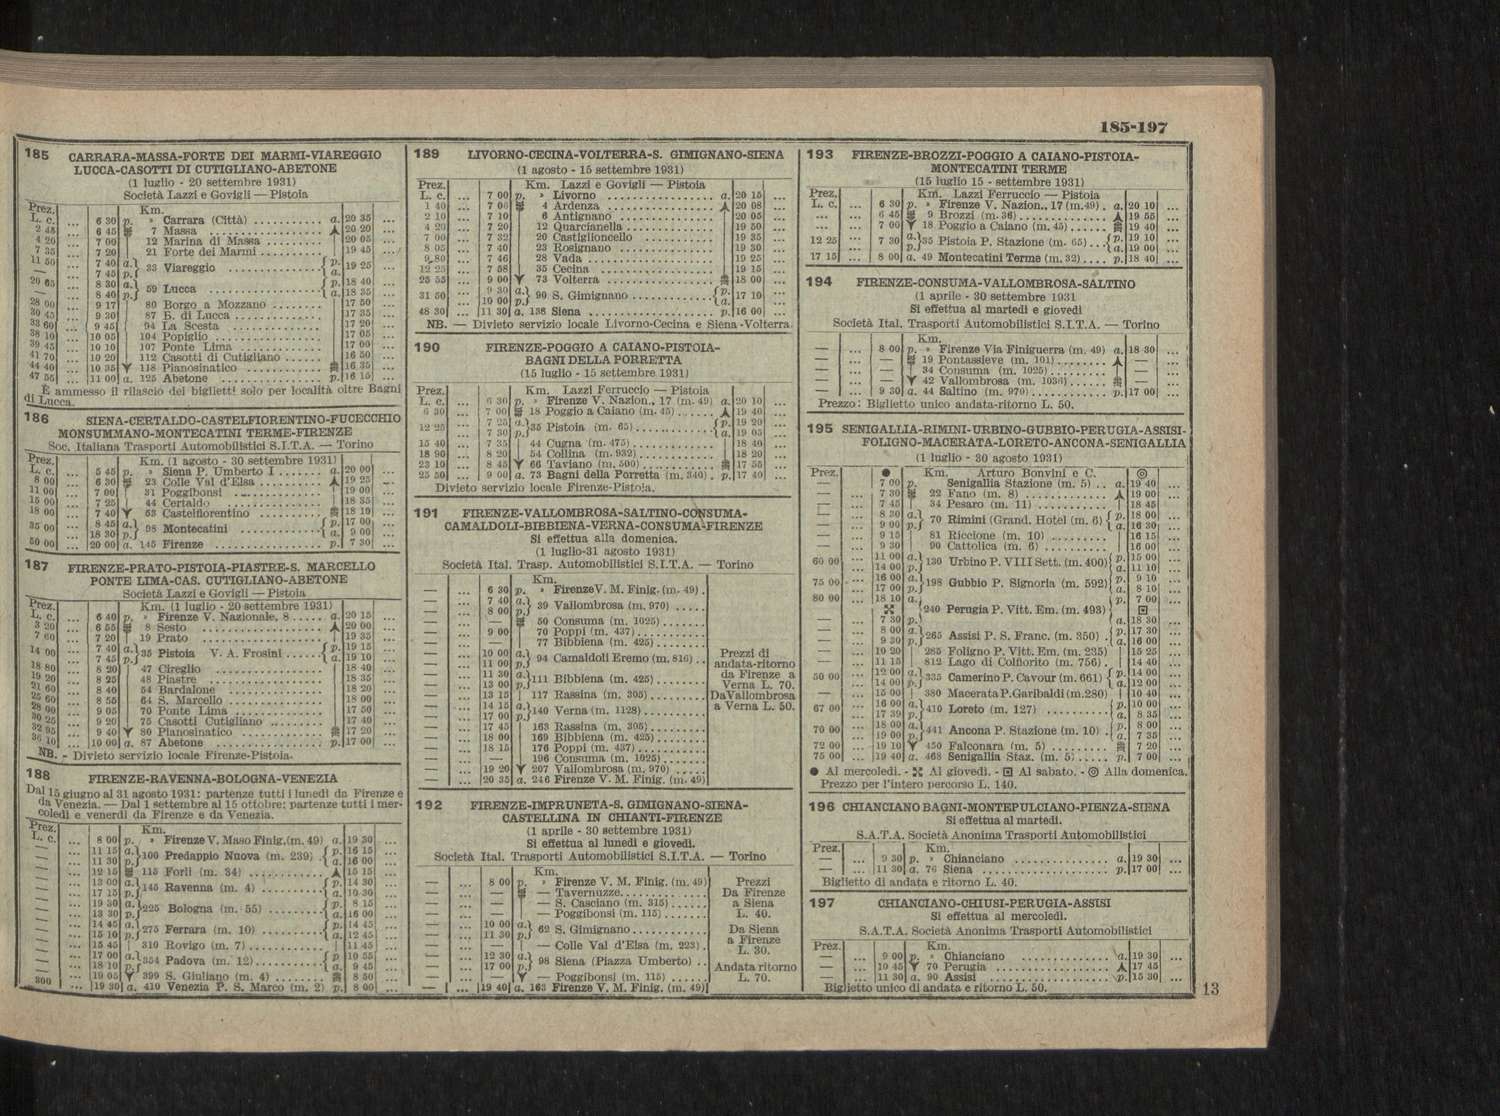 185-197
185 CARRARA-MASSA-FORTE DEI MARMI-VIAREGGIO
LUCCA-CASOTTI DI CUTIGLIANO-ABETONE
(1 luglio - 20 settembre 1931)
Società Lazzi e Govigli — Pistoia
Prez. Km.
L. c. ... 6 30 p. » Carrara (Città) .......... a. 20 35 ...
2 45 ... 6 45 7 Massa .......... 20 20 ...
4 20 ... 7 00 12 Marina di Massa .......... 20 05 ...
7 35 ... 7 20 21 Forte dei Marmi .......... 19 45 ...
11 50 ... 7 40 a. 33 Viareggio .......... p. 19 25 ...
— ... 7 45 p. a.
20 65 ... 8 30 a. 59 Lucca .......... p. 18 40 ...
— ... 8 40 p. a. 18 35 ...
28 00 ... 9 17 80 Borgo a Mozzano ....... 17 50 ...
30 45 ... 9 30 87 B. di Lucca .......... 17 35 ...
33 60 ... 9 45 94 La Scesta .......... 17 20 ...
38 10 ... 10 05 104 Popiglio .......... 17 05 ...
39 45 ... 10 10 107 Ponte Lima .......... 17 00 ...
41 70 ... 10 20 112 Casotti di Cutigliano ...... 16 50 ...
44 40 ... 10 35 118 Pianosinatico .......... 16 35 ...
47 55 ... 11 00 a. 125 Abetone .......... p. 16 15 ...
È ammesso il rilascio dei biglietti solo per località oltre Bagni
di Lucca.
186 SIENA-CERTALDO-CASTELFIORENTINO-FUCECCHIO
MONSUMMANO-MONTECATINI TERME-FIRENZE
Soc. Italiana Trasporti Automobilistici S.I.T.A. — Torino
Prez. Km. (1 agosto - 30 settembre 1931)
L. c. ... 5 45 p. » Siena P. Umberto I ....... a. 20 00 ...
8 00 ... 6 30 23 Colle Val d'Elsa ....... 19 25 ...
11 00 ... 7 00 31 Poggibonsi .......... 19 00 ...
15 00 ... 7 25 44 Certaldo .......... 18 35 ...
18 00 ... 7 40 53 Castelfiorentino ....... 18 10 ...
35 00 ... 8 45 a. 98 Montecatini .......... p. 17 00 ...
18 30 p. a. 9 00
50 00 ... 20 00 a. 145 Firenze .......... p. 7 30 ...
187 FIRENZE-PRATO-PISTOIA-PIASTRE-S. MARCELLO
PONTE LIMA-CAS. CUTIGLIANO-ABETONE
Società Lazzi e Govigli — Pistoia
Prez. Km. (1 luglio - 20 settembre 1931)
L. c. ... 6 40 p. » Firenze V. Nazionale, 8 ..... a. 20 15 ...
3 20 ... 6 55 8 Sesto .......... 20 00 ...
7 60 ... 7 20 19 Prato .......... 19 35 ...
14 00 ... 7 40 a. 35 Pistoia V. A. Frosini ...... p. 19 15 ...
7 45 p. a. 19 10 ...
18 80 ... 8 20 47 Cireglio .......... 18 40 ...
19 20 ... 8 25 48 Piastre .......... 18 35 ...
21 60 ... 8 40 54 Bardalone .......... 18 20 ...
25 60 ... 8 55 64 S. Marcello .......... 18 00 ...
28 00 ... 9 05 70 Ponte Lima .......... 17 50 ...
30 25 ... 9 20 75 Casotti Cutigliano ....... 17 40 ...
32 95 ... 9 40 80 Pianosinatico .......... 17 20 ...
36 10 ... 10 00 a. 87 Abetone .......... p. 17 00 ...
NB. - Divieto servizio locale Firenze-Pistoia.
188 FIRENZE-RAVENNA-BOLOGNA-VENEZIA
Dal 15 giugno al 31 agosto 1931: partenze tutti i lunedì da Firenze e
da Venezia. — Dal 1 settembre al 15 ottobre: partenze tutti i mer-
coledì e venerdì da Firenze e da Venezia.
Prez. Km.
L. c. ... 8 00 p. » Firenze V. Maso Finig.(m. 49) a. 19 30 ...
— ... 11 15 a. 100 Predappio Nuova (m. 239) . p. 16 15 ...
— ... 11 30 p. a. 16 00 ...
— ... 12 15 115 Forlì (m. 34) .......... 15 15 ...
— ... 13 00 a. 145 Ravenna (m. 4) .......... p. 14 30 ...
— ... 17 15 p. a. 10 30 ...
— ... 19 30 a. 225 Bologna (m. 55) ........ p. 8 15 ...
— ... 13 30 p. a. 16 00 ...
— ... 14 45 a. 275 Ferrara (m. 10) .......... p. 14 45 ...
— ... 15 10 p. a. 12 45 ...
— ... 15 45 310 Rovigo (m. 7) .......... 11 45 ...
— ... 17 00 a. 354 Padova (m. 12) .......... p 10 55 ...
— ... 18 10 p. a. 9 45 ...
— ... 19 05 399 S. Giuliano (m. 4) ....... 8 50 ...
300 ... 19 30 a. 410 Venezia P. S. Marco (m. 2) p. 8 00 ...
189 LIVORNO-CECINA-VOLTERRA-S. GIMIGNANO-SIENA
(1 agosto - 15 settembre 1931)
Prez. Km. Lazzi e Govigli — Pistoia
L. c. ... 7 00 p. » Livorno .......... a. 20 15 ...
1 40 ... 7 05 4 Ardenza .......... 20 08 ...
2 10 ... 7 10 6 Antignano .......... 20 05 ...
4 20 ... 7 20 12 Quarcianella .......... 19 50 ...
7 00 ... 7 32 20 Castiglioncello .......... 19 35 ...
8 05 ... 7 40 23 Rosignano .......... 19 30 ...
9 80 ... 7 46 28 Vada .......... 19 25 ...
12 25 ... 7 58 35 Cecina .......... 19 15 ...
25 55 ... 9 00 73 Volterra .......... 18 00 ...
31 50 ... 9 30 a. 90 S. Gimignano .......... p. 17 10 ...
10 00 p. a.
48 30 ... 11 30 a. 138 Siena .......... p. 16 00 ...
NB. — Divieto servizio locale Livorno-Cecina e Siena-Volterra.
190 FIRENZE-POGGIO A CAIANO-PISTOIA-
BAGNI DELLA PORRETTA
(15 luglio - 15 settembre 1931)
Prez. Km. Lazzi Ferruccio — Pistoia
L. c. ... 6 30 p. » Firenze V. Nazion., 17 (m. 49) a. 20 10 ...
6 30 ... 7 00 18 Poggio a Caiano (m. 45) ...... 19 40 ...
12 25 ... 7 25 a. 35 Pistoia (m. 65) .......... p. 19 20 ...
7 30 p. a. 19 05 ...
15 40 ... 7 35 44 Cugna (m. 475) .......... 18 40 ...
18 90 ... 8 20 54 Collina (m. 932) .......... 18 20 ...
23 10 ... 8 45 66 Taviano (m. 500) .......... 17 55 ...
25 50 ... 9 00 a. 73 Bagni della Porretta (m. 340) . p. 17 40 ...
Divieto servizio locale Firenze-Pistoia.
191 FIRENZE-VALLOMBROSA-SALTINO-CONSUMA-
CAMALDOLI-BIBBIENA-VERNA-CONSUMA-FIRENZE
Si effettua alla domenica.
(1 luglio-31 agosto 1931)
Società Ital. Trasp. Automobilistici S.I.T.A. — Torino
Km.
— ... 6 30 p. » Firenze V. M. Finig. (m. 49) .
— ... 7 40 a. 39 Vallombrosa (m. 970) .....
8 00 p.
— ... — 50 Consuma (m. 1025) .......
— ... 9 00 70 Poppi (m. 437) ..........
— ... — 77 Bibbiena (m. 425) ........
— ... 10 00 a. 94 Camaldoli Eremo (m. 816) ..
— ... 11 00 p.
— ... 11 30 a. 111 Bibbiena (m. 425) ........
— ... 13 00 p.
— ... 13 15 117 Rassina (m. 305) ..........
— ... 14 15 a. 140 Verna (m. 1128) ..........
— ... 17 00 p.
— ... 17 45 163 Rassina (m. 305) ..........
— ... 18 00 169 Bibbiena (m. 425) ........
— ... 18 15 176 Poppi (m. 437) ..........
— — 196 Consuma (m. 1025) .......
— ... 19 20 207 Vallombrosa (m. 970) .....
— ... 20 35 a. 246 Firenze V. M. Finig. (m. 49)
Prezzi di
andata-ritorno
da Firenze a
Verna L. 70.
Da Vallombrosa
a Verna L. 50.
192 FIRENZE-IMPRUNETA-S. GIMIGNANO-SIENA-
CASTELLINA IN CHIANTI-FIRENZE
(1 aprile - 30 settembre 1931)
Si effettua al lunedì e giovedì.
Società Ital. Trasporti Automobilistici S.I.T.A. — Torino
Km.
— ... 8 00 p. » Firenze V. M. Finig. (m. 49)
— ... — — Tavernuzze..........
— ... — — S. Casciano (m. 315) ......
— ... — — Poggibonsi (m. 115) .......
— ... 10 00 a. 62 S. Gimignano ..........
— ... 11 30 p.
— ... — — Colle Val d'Elsa (m. 223) .
— ... 12 30 a. 98 Siena (Piazza Umberto) ..
— ... 17 00 p.
— ... — — Poggibonsi (m. 115) .......
— ... 19 40 a. 163 Firenze V. M. Finig. (m. 49)
Prezzi
Da Firenze
a Siena
L. 40.
Da Siena
a Firenze
L. 30.
Andata ritorno
L. 70.
193 FIRENZE-BROZZI-POGGIO A CAIANO-PISTOIA-
MONTECATINI TERME
(15 luglio 15 - settembre 1931)
Prez. Km. Lazzi Ferruccio — Pistoia
L. c. ... 6 30 p. » Firenze V. Nazion., 17 (m.49) . a. 20 10 ...
... ... 6 45 9 Brozzi (m. 36) .......... 19 55 ...
... ... 7 00 18 Poggio a Caiano (m. 45) ....... 19 40 ...
12 25 ... 7 30 a. 35 Pistoia P. Stazione (m. 65) ... p. 19 10 ...
p. a. 19 00 ...
17 15 ... 8 00 a. 49 Montecatini Terme (m. 32) .... p. 18 40 ...
194 FIRENZE-CONSUMA-VALLOMBROSA-SALTINO
(1 aprile - 30 settembre 1931
Si effettua al martedì e giovedì
Società Ital. Trasporti Automobilistici S.I.T.A. — Torino
Km.
— ... 8 00 p. » Firenze Via Finiguerra (m. 49) a. 18 30 ...
— ... — 19 Pontassieve (m. 101) .......... — ...
— ... — 34 Consuma (m. 1025) .......... — ...
— ... — 42 Vallombrosa (m. 1036) ........ — ...
— ... 9 30 a. 44 Saltino (m. 970) .......... p. 17 00 ...
Prezzo: Biglietto unico andata-ritorno L. 50.
195 SENIGALLIA-RIMINI-URBINO-GUBBIO-PERUGIA-ASSISI-
FOLIGNO-MACERATA-LORETO-ANCONA-SENIGALLIA
(1 luglio - 30 agosto 1931)
Prez. ● Km. Arturo Bonvini e C. ◎
— ... 7 00 p. Senigallia Stazione (m. 5) .. a. 19 40 ...
— ... 7 30 22 Fano (m. 8) .......... 19 00 ...
— ... 7 45 34 Pesaro (m. 11) .......... 18 45 ...
— ... 8 30 a. 70 Rimini (Grand. Hotel (m. 6) p. 18 00 ...
— ... 9 00 p. a. 16 30 ...
— ... 9 15 81 Riccione (m. 10) .......... 16 15 ...
— ... 9 30 90 Cattolica (m. 6) .......... 16 00 ...
60 00 ... 11 00 a. 130 Urbino P. VIII Sett. (m. 400) p. 15 00 ...
14 00 p. a. 11 10 ...
75 00 ... 16 00 a. 198 Gubbio P. Signoria (m. 592) p. 9 10 ...
17 00 p. a. 8 10 ...
80 00 ... 18 10 a. 240 Perugia P. Vitt. Em. (m. 493) p. 7 00 ...
— 7 30 p. a. 18 30 ...
— ... 8 00 a. 265 Assisi P. S. Franc. (m. 350) . p. 17 30 ...
— ... 9 30 p. a. 16 00 ...
— ... 10 20 285 Foligno P. Vitt. Em. (m. 235) 15 25 ...
— ... 11 15 312 Lago di Colfiorito (m. 756) . 14 40 ...
50 00 ... 12 00 a. 335 Camerino P. Cavour (m. 661) p. 14 00 ...
14 00 p. a. 12 00 ...
— ... 15 00 380 Macerata P.Garibaldi (m.280) 10 40 ...
67 00 ... 16 00 a. 410 Loreto (m. 127) .......... p. 10 00 ...
17 30 p. a. 8 35 ...
70 00 ... 18 00 a. 441 Ancona P. Stazione (m. 10) . p. 8 00 ...
19 00 p. a. 7 35 ...
72 00 ... 19 10 450 Falconara (m. 5) .......... 7 20 ...
75 00 ... 19 40 a. 468 Senigallia Staz. (m. 5) ..... p. 7 00 ...
● Al mercoledì. - Al giovedì. - Al sabato. - ◎ Alla domenica.
Prezzo per l'intero percorso L. 140.
196 CHIANCIANO BAGNI-MONTEPULCIANO-PIENZA-SIENA
Si effettua al martedì.
S.A.T.A. Società Anonima Trasporti Automobilistici
Prez. Km.
— ... 9 30 p. » Chianciano .......... a. 19 30 ...
— ... 11 30 a. 76 Siena .......... p. 17 00 ...
Biglietto di andata e ritorno L. 40.
197 CHIANCIANO-CHIUSI-PERUGIA-ASSISI
Si effettua al mercoledì.
S.A.T.A. Società Anonima Trasporti Automobilistici
Prez. Km.
— ... 9 00 p. » Chianciano .......... a. 19 30 ...
— ... 10 45 70 Perugia .......... 17 45 ...
— ... 11 30 a. 90 Assisi .......... p. 15 30 ...
Biglietto unico di andata e ritorno L. 50.
13